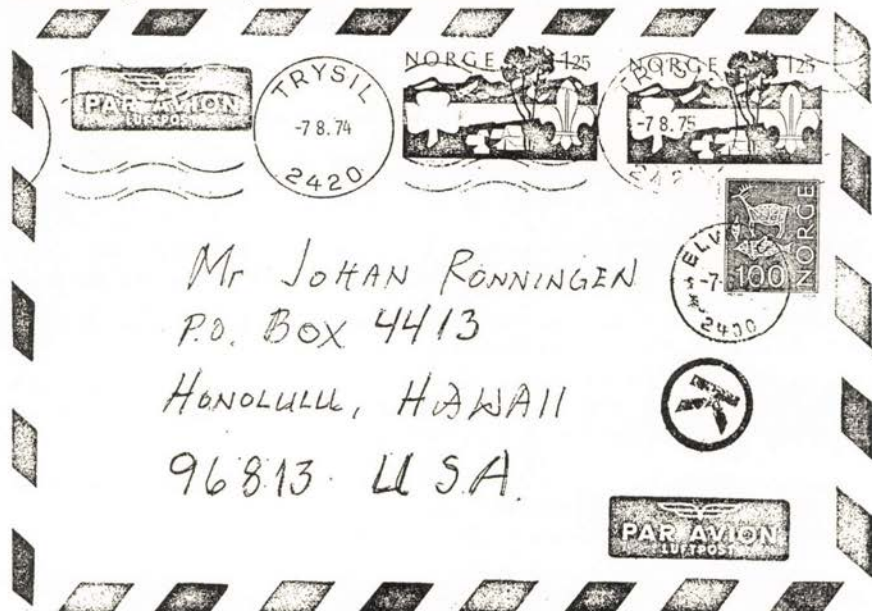 PAR AVION
LUFTPOST
TRYSIL
-7 8. 74
2420
NORGE 125
NORGE 125
-7 8. 75
NORGE
100
-7-
2400
Mr JOHAN RONNINGEN
P.O. BOX 4413
HONOLULU, HAWAII
96813 U S.A.
PAR AVION
LUFTPOST